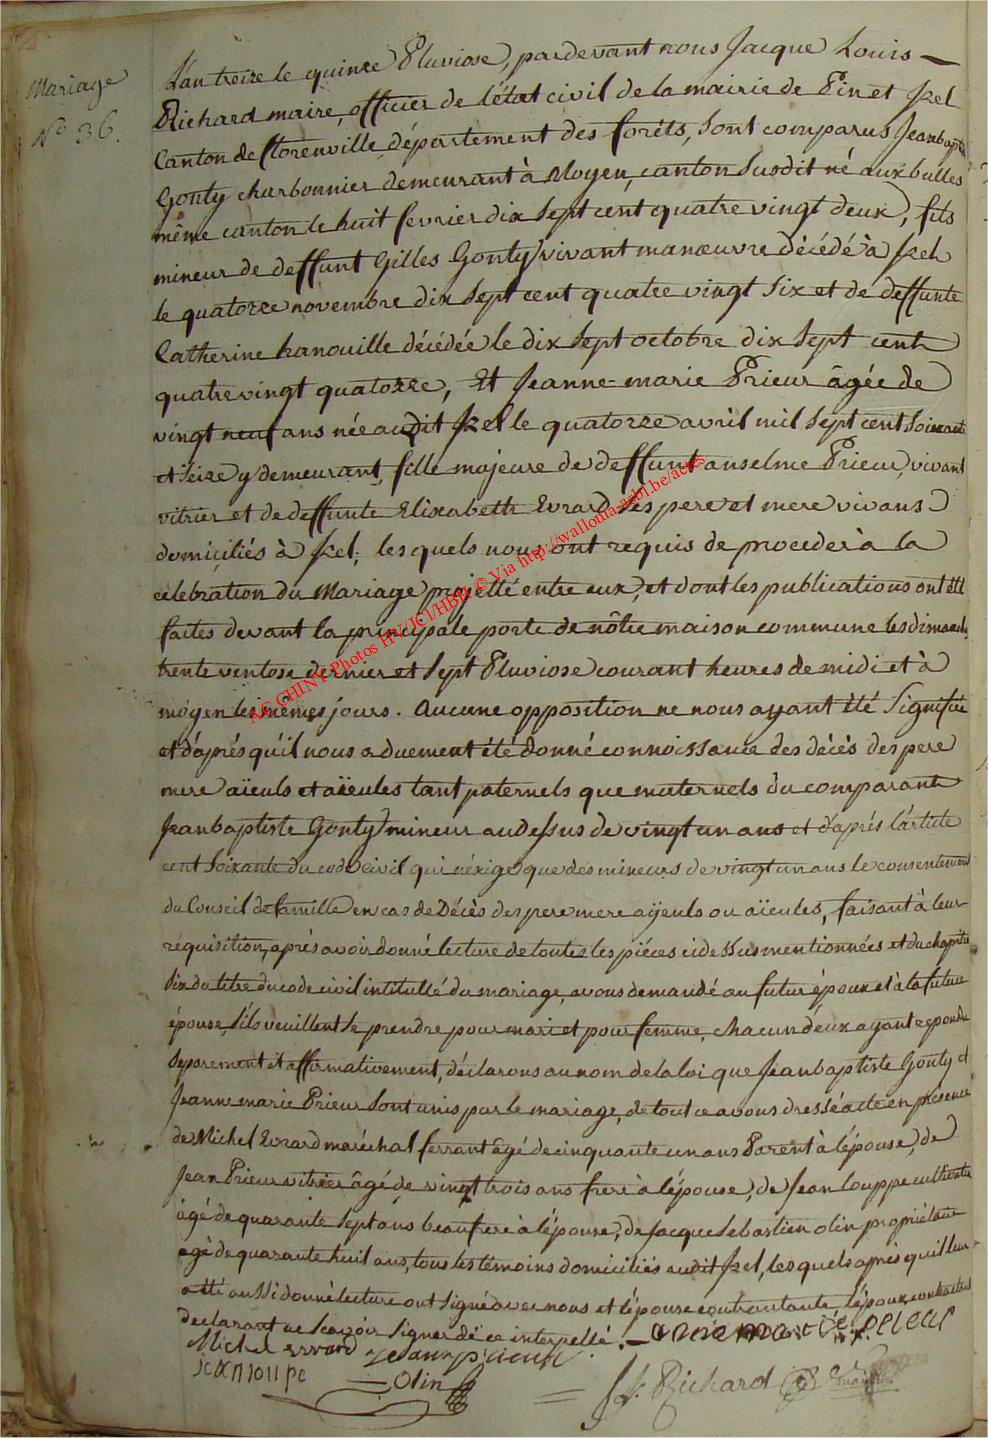 Mariage
N° 36.
L'an treize le quinze Pluviose, pardevant nous Jacque Louis
Richard maire, officier de l'état civil de la mairie de Pin et Izel
Canton de florenville, département des forêts, sont comparus Jeanbaptiste
Gonty charbonnier demeurant à Moyen, canton susdit né aux bulles
même canton le huit fevrier dix sept cent quatre vingt deux, fils
mineur de deffunt Gilles Gonty vivant manœuvre décédé à Izel
le quatorze novembre dix sept cent quatre vingt six et de deffunte
Catherine hanouille décédée le dix sept octobre dix sept cent
quatre vingt quatorze, Et Jeanne marie Prieur âgée de
vingt neuf ans née audit Izel le quatorze avril mil sept cent soixante
et seize y demeurant, fille majeure de deffunt anselme Prieur, vivant
vitrier et de deffunte Elixabeth Evrard ses pere et mere vivans
domiciliés à Izel; lesquels nous ont requis de proceder à la
célebration du Mariage projetté entre eux, et dont les publications ont été
faites devant la principale porte de nôtre maison commune les dimanches
trente ventose dernier et sept Pluviose courant heures de midi et à
moyen les mêmes jours. Aucune opposition ne nous ayant été signifiée
et d'après qu'il nous a duement été donné connoissance des décès des pere
mere aïeuls et aïeules tant paternels que maternels du comparant
Jeanbaptiste Gonty mineur au dessus de vingt un ans et d'aprés l'article
cent soixante du code civil qui n'éxige que des mineurs de vingt un ans le consentement
du Conseil de famille en cas de Décès des pere mere ayeuls ou aïeules, faisant à leur
réquisition, après avoir donné lecture de toutes les piéces cidessus mentionnées et du chapitre
six du titre du code civil intitullé du mariage, avons demandé au futur époux et à la future
épouse s'ils veuillent se prendre pour mari et pour femme, chacun d'eux ayant repondu
separement et affirmativement, déclarons au nom de la loi que Jeanbaptiste Gonty et
Jeanne marie Prieur sont unis par le mariage, de tout ce avons dressé acte en présence
de Michel Evrard maréchal ferrant âgé de cinquante un ans Parent à l'épouse, de
Jean Prieur vitrier âgé de vingt trois ans frere à l'épouse, de Jean Louppe cultivateur
âgé de quarante sept ans beaufrere à l'épouse, de Jacque Sebastien Olin propriétaire
agé de quarante huit ans, tous les témoins domiciliés audit Izel, lesquels après qu'il leur
a été aussi donné lecture ont signé avec nous et l'épouse contractante, l'époux contractant
declarant ne scavoir signer de ce interpellé.
Michel evrard Jean prieur
jean loupe
Olin
Richard
A.E. CHINY Photos HV/JCl/HBer © Via http://wallonia-asbl.be/actes